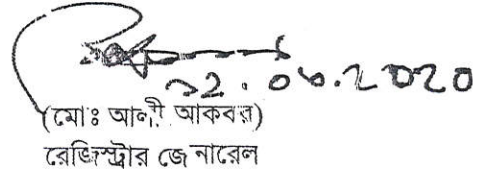 ১২.০৬.২০২০
(মোঃ আলী আকবর)
রেজিস্ট্রার জেনারেল